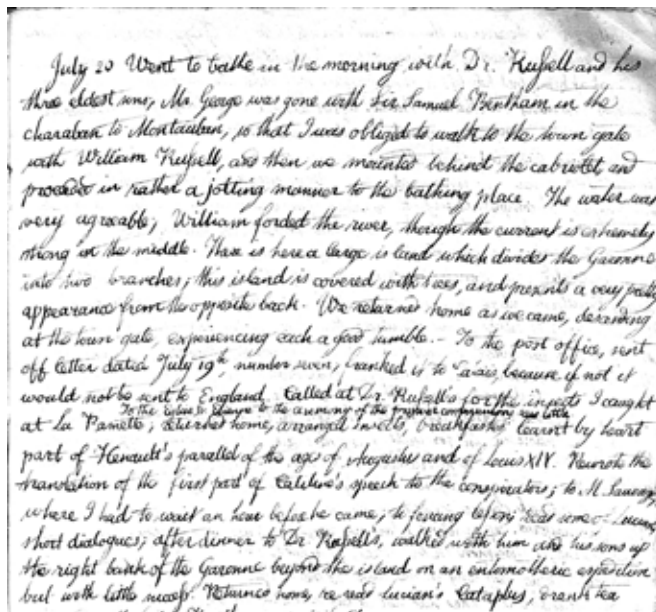 July 20 Went to bathe in the morning with Dr. Russell and his
three eldest sons, Mr. George was gone with Sir Samuel Bentham in the
charaban to Montauban, so that I was obliged to walk to the town gate
with William Russell, and then we mounted behind the cabriolet and
proceeded in rather a jolting manner to the bathing place. The water was
very agreeable; William forded the river, though the current is extremely
strong in the middle. There is here a large island which divides the Garonne
into two branches; this island is covered with trees, and presents a very pretty
appearance from the opposite bank. We returned home as we came, descending
at the town gate, experiencing each a good tumble. - To the post office, sent
off letter dated July 19th number seven, franked it to Calais, because if not it
would not be sent to England. Called at Dr. Russell's for the insects I caught
To the to the of the
at La Panette, returned home, arranged insects, breakfasted learnt by heart
part of Henault's parallel of the age of Augustus and of Louis XIV. Rewrote the
translation of the first part of Catiline's speech to the conspirators; to M. Sauvage,
where I had to wait an hour before he came; to fencing lesson; read some of Lucian's
short dialogues; after dinner to Dr. Russell's, walked with him and his sons up
the right bank of the Garonne beyond the island on an entomotheric expedition
but with little success. Returned home, re read Lucian's Cataplus, drank tea